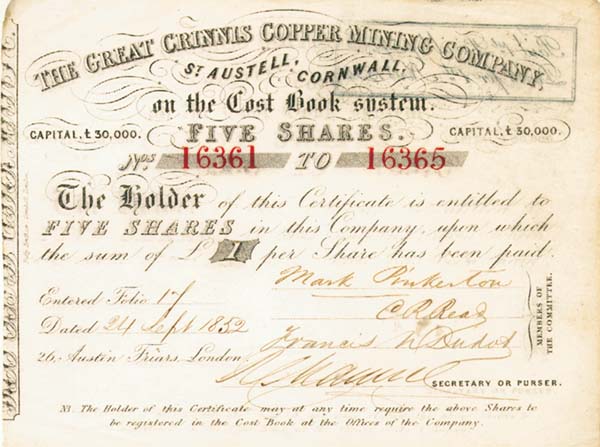 THE GREAT CRINNIS COPPER MINING COMPANY,
ST AUSTELL, CORNWALL,
on the Cost Book system.
CAPITAL, £30,000. FIVE SHARES. CAPITAL, £30,000.
Nos 16361 TO 16365
The Holder of this Certificate is entitled to
FIVE SHARES in this Company, upon which
the sum of £1 per Share has been paid.
Mark Pinkerton
Entered Folio 17
C R Read
Dated 24 Sept 1852
Francis
MEMBERS OF THE COMMITTEE.
26, Austin Friars, London.
SECRETARY OR PURSER.
NB. The Holder of this Certificate may at any time require the above Shares to
be registered in the Cost Book at the Offices of the Company.